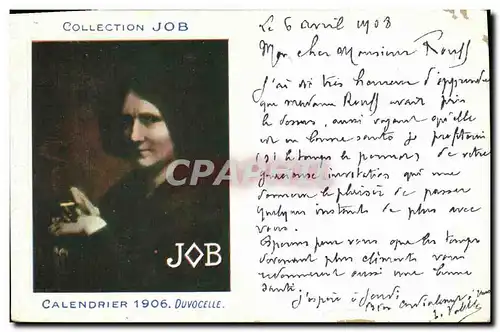 COLLECTION JOB
JOB
CALENDRIER 1906. DUVOCELLE.
CPARAMA
Le 6 avril 1908
Mon cher Monsieur Rouff
J'ai été très heureux d'apprendre
que madame Rouff avait pris
le dessus, aussi voyant qu'elle
est en bonne santé je profiterai
(si le temps le permet) de votre
gracieuse invitation qui me
donnera le plaisir de passer
quelques instants de plus avec
vous.
Espérons pour vous que les temps
devenant plus cléments vous
redonneront aussi une bonne
santé.
J'espère à Jeudi
Bien cordialement